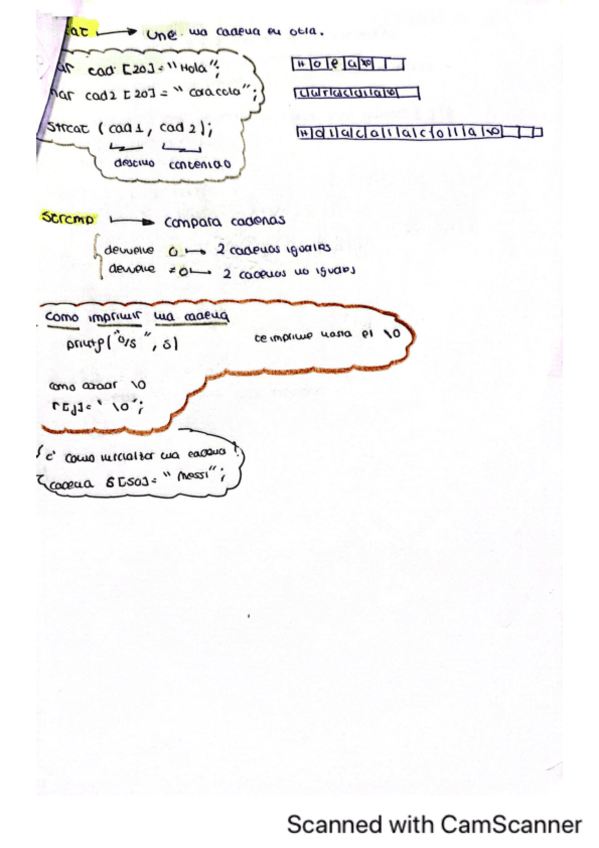 cat → une una cadena en otra.
ar cad [20] = "Hola";
H o l a \0
har cad2 [20] = " caracola";
strcat ( cad1, cad2 );
destino contenido
strcmp → compara cadenas
devuelve 0 → 2 cadenas iguales
devuelve ≠0 → 2 cadenas no iguales
como imprimir una cadena
printf("%s ", s)
te imprime hasta el \0
como añadir \0
r[j]= ' \0';
como inicializar una cadena
cadena s[50]= " Messi";
Scanned with CamScanner